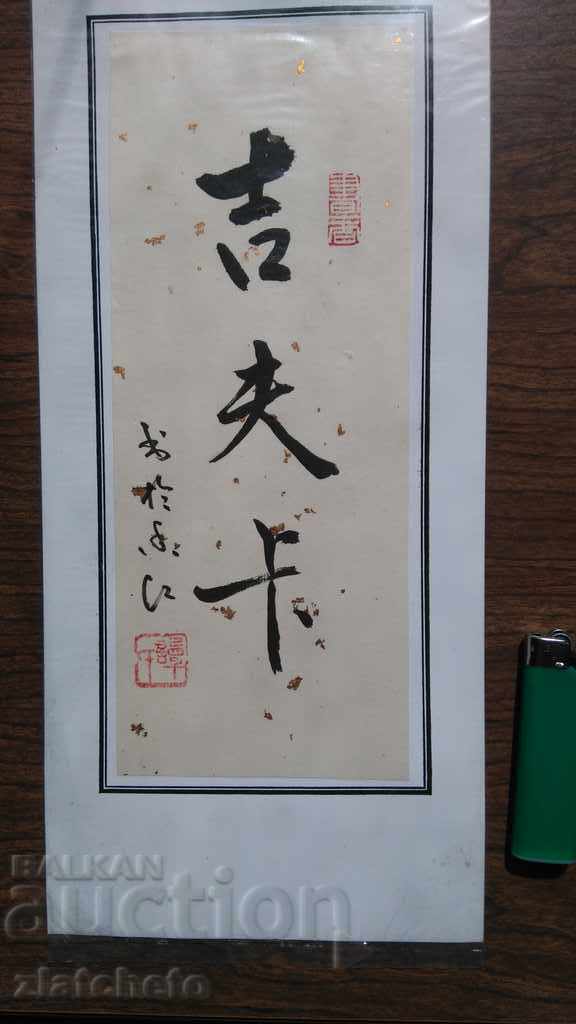 吉夫卡
书於香江
BALKAN
auction
zlatcheto